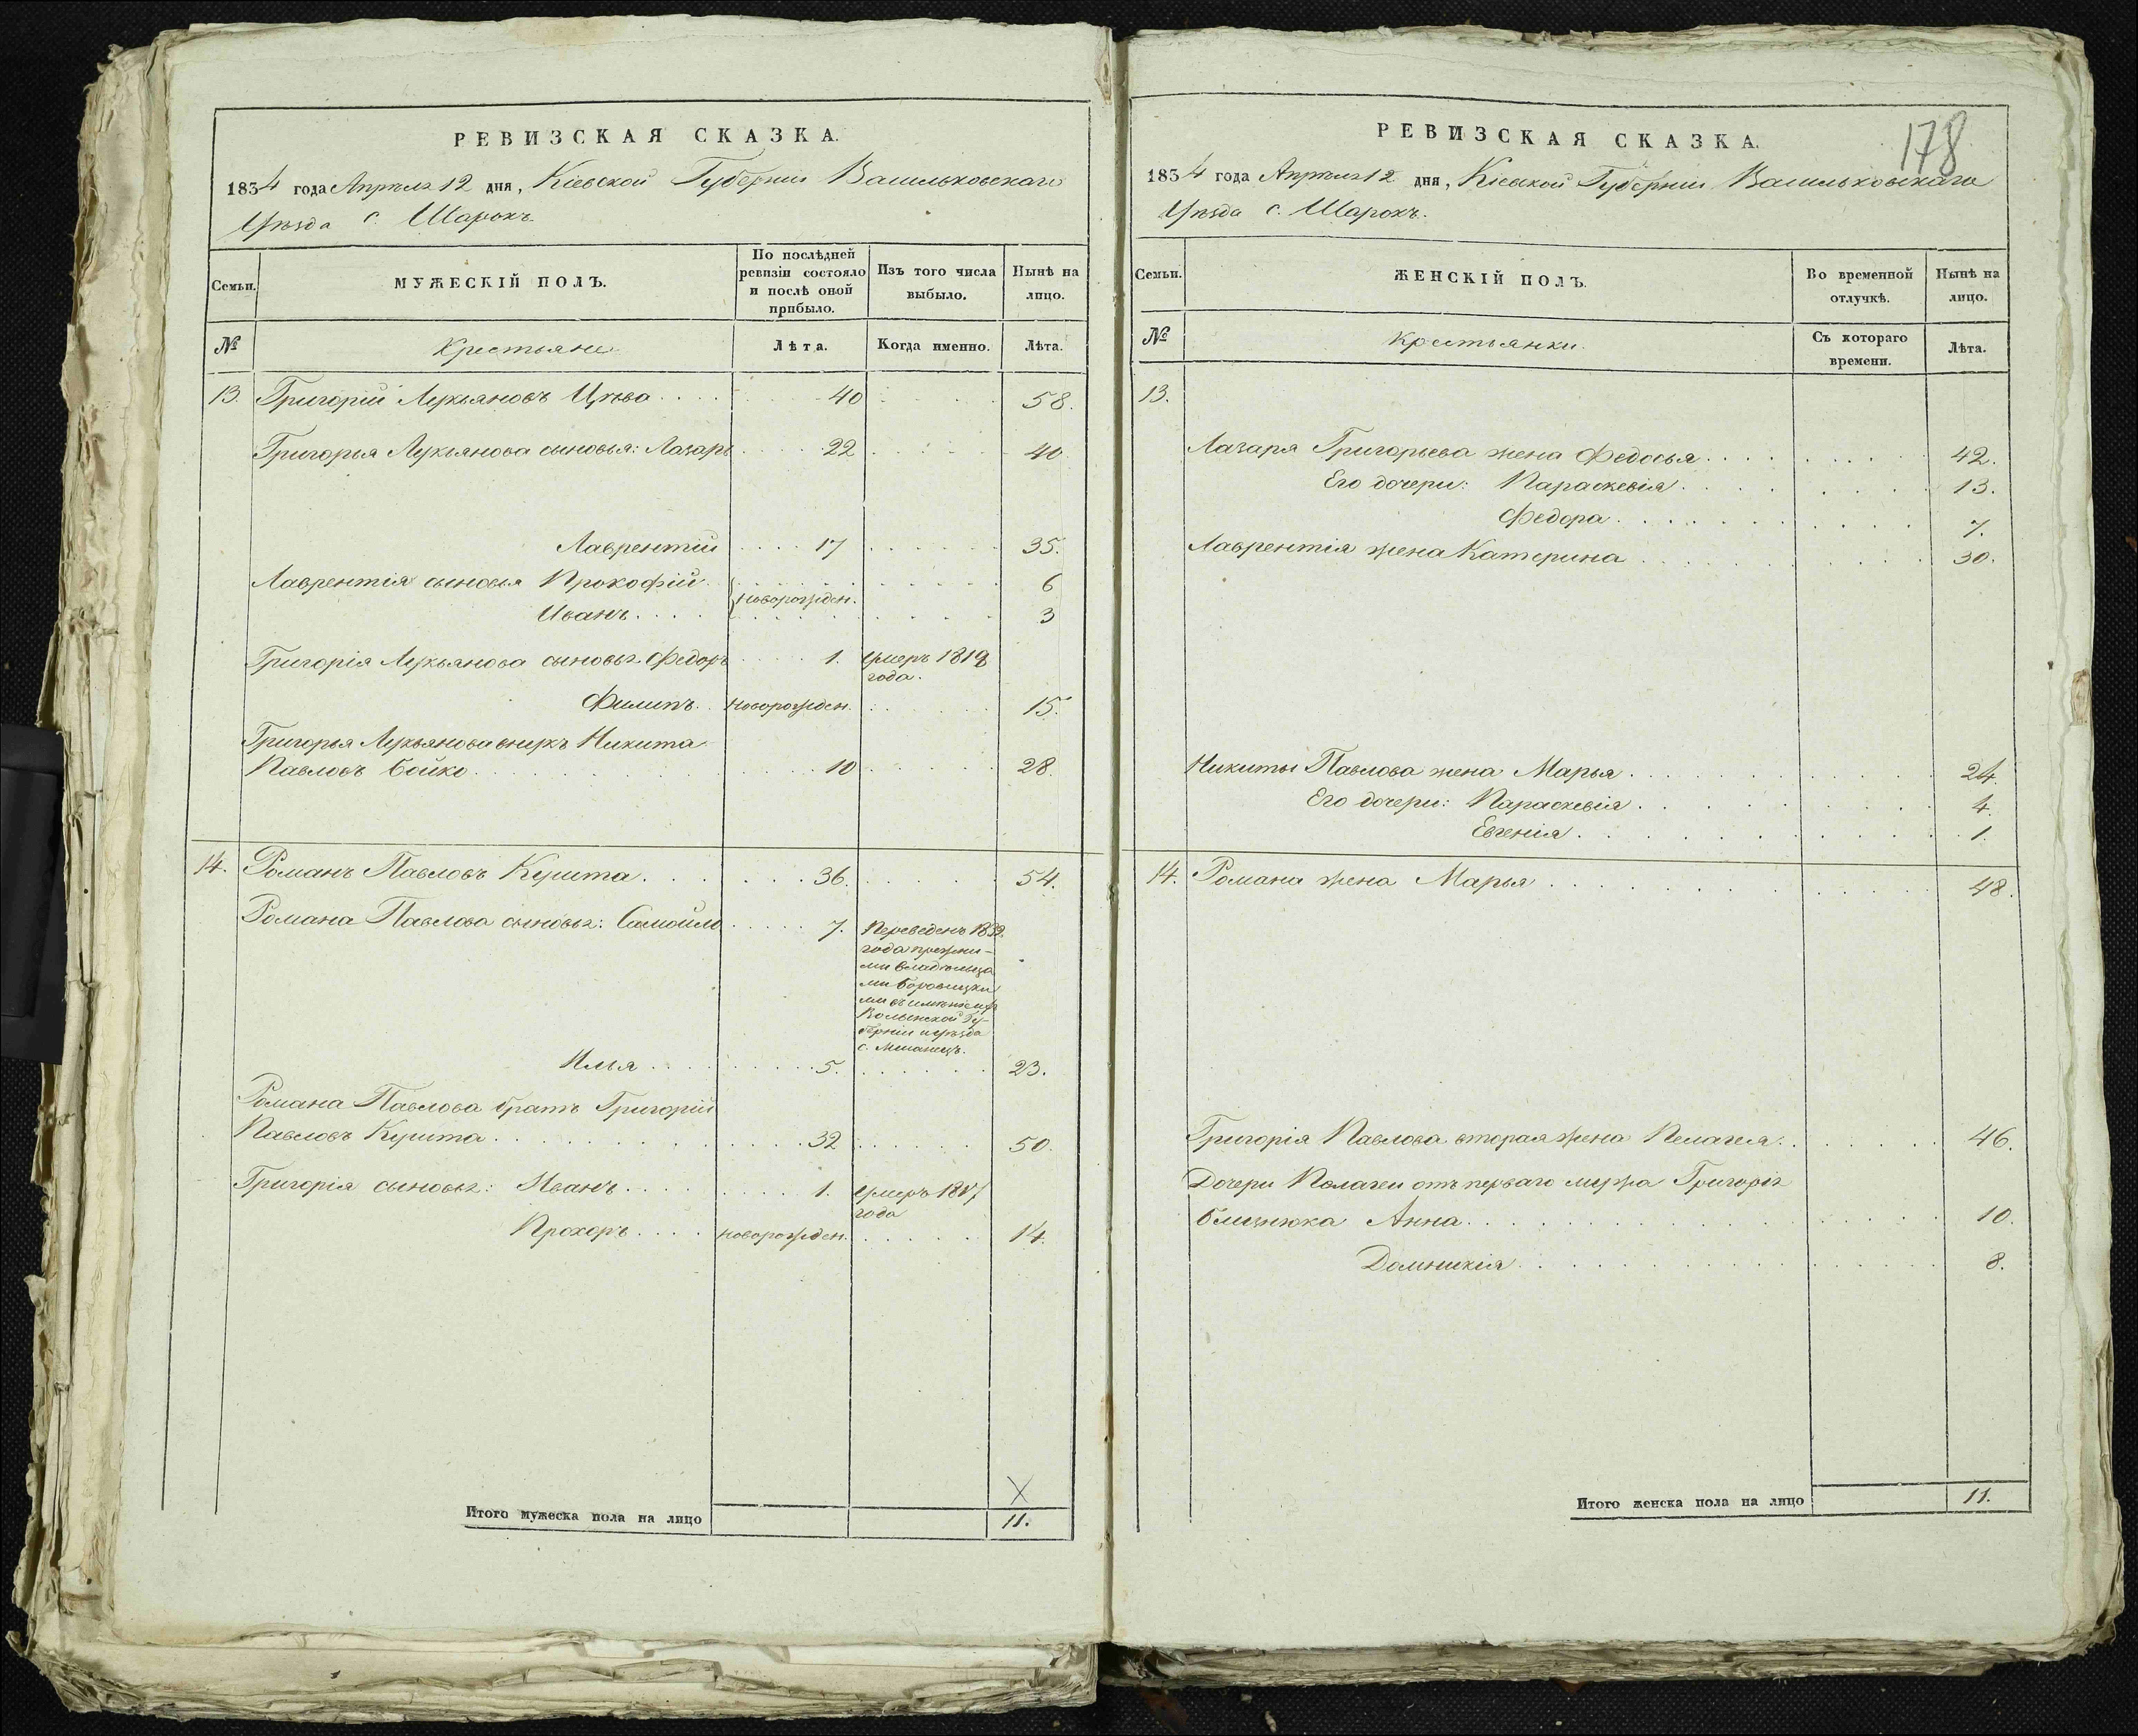 РЕВИЗСКАЯ СКАЗКА.
1834 года Апрѣля 12 дня, Кіевской Губерніи Васильковскаго
Уѣзда с. Шарокъ.
Семьи.
МУЖЕСКІЙ ПОЛЪ.
По послѣдней ревизіи состояло и послѣ оной прибыло.
Изъ того числа выбыло.
Нынѣ на лицо.
№ Крестьяне Лѣта. Когда именно. Лѣта.
13. Григорій Лукьяновъ Цѣва 40 58.
Григорья Лукьянова сыновья: Лазарь 22 40
Лаврентій 17 35.
Лаврентія сыновья Прокофій 6
новорожден.
Иванъ 3
Григорія Лукьянова сыновья Федоръ 1. умеръ 1819
года.
Филипъ новорожден. 15.
Григорья Лукьянова внукъ Никита
Павловъ Бойко 10 28.
14. Романъ Павловъ Кушта 36. 54.
Романа Павлова сыновья: Самойло 7. Переведенъ 1832.
года прежни-
ми владѣльца
ми Боровицки
ми въ имѣніе
Волынской Гу-
берніи уѣзда
с.
Илья 5. 23.
Романа Павлова братъ Григорій
Павловъ Кушта 32 50.
Григорія сыновья: Иванъ 1. умеръ 1817
года
Прохоръ новорожден. 14.
X
Итого мужеска пола на лицо 11.
РЕВИЗСКАЯ СКАЗКА.
178
1834 года Апрѣля 12 дня, Кіевской Губерніи Васильковскаго
Уѣзда с. Шарокъ.
Семьи.
ЖЕНСКІЙ ПОЛЪ.
Во временной отлучкѣ.
Нынѣ на лицо.
№ Крестьянки. Съ котораго времени. Лѣта.
13.
Лазаря Григорьева жена Федосья 42.
Его дочери: Параскевія 13.
Федора 7.
Лаврентія жена Катерина 30.
Никиты Павлова жена Марья 24.
Его дочери: Параскевія 4.
Евгенія 1.
14. Романа жена Марья 48.
Григорія Павлова вторая жена Пелагея 46.
Дочери Пелагеи отъ перваго мужа Григорія
Близнюка Анна 10.
Домникія 8.
Итого женска пола на лицо 11.